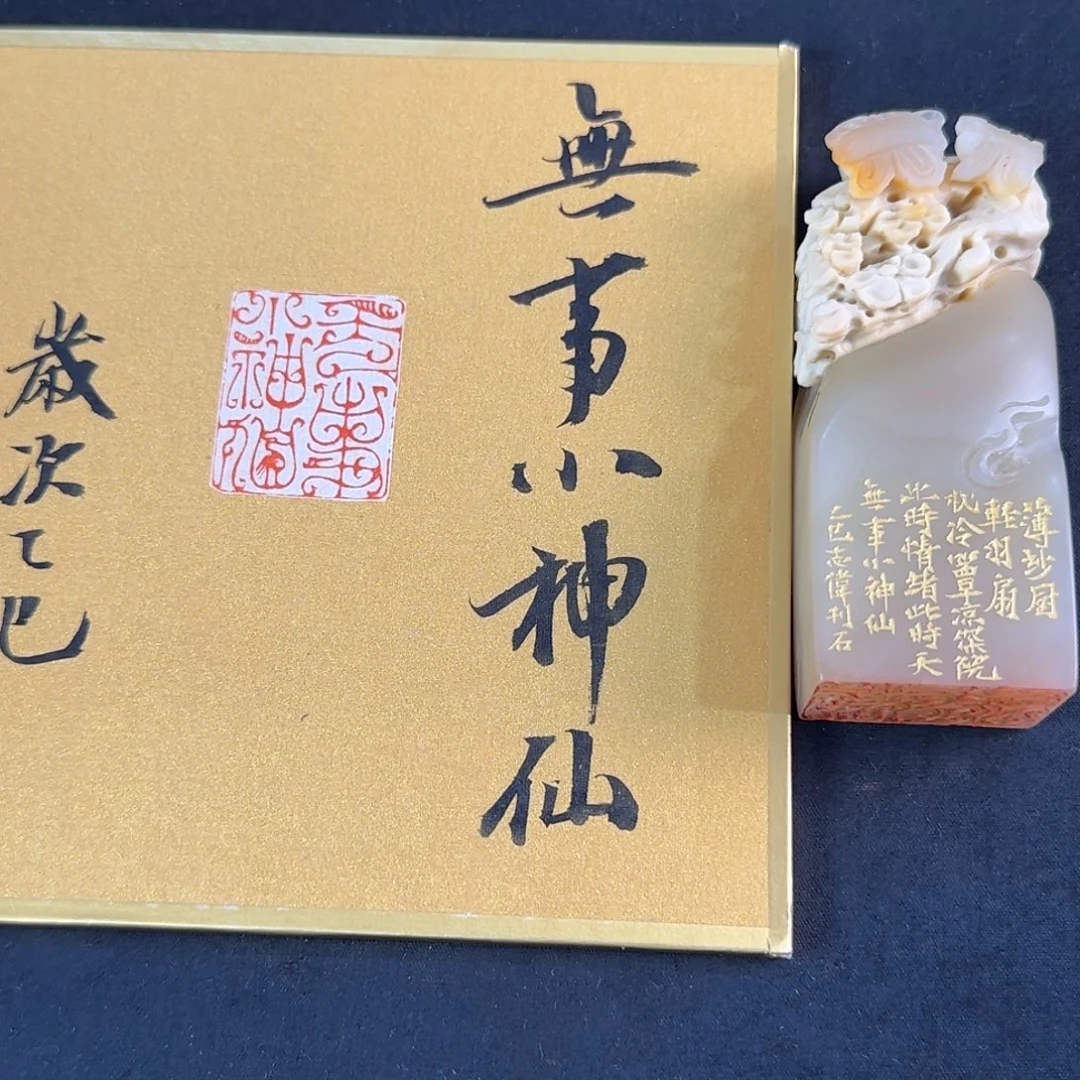 無事小神仙
无事
小神仙
歲次乙巳
薄紗厨
輕羽扇
枕冷簟凉深院
此時情緒此時天
無事小神仙
乙巳志偉刊石